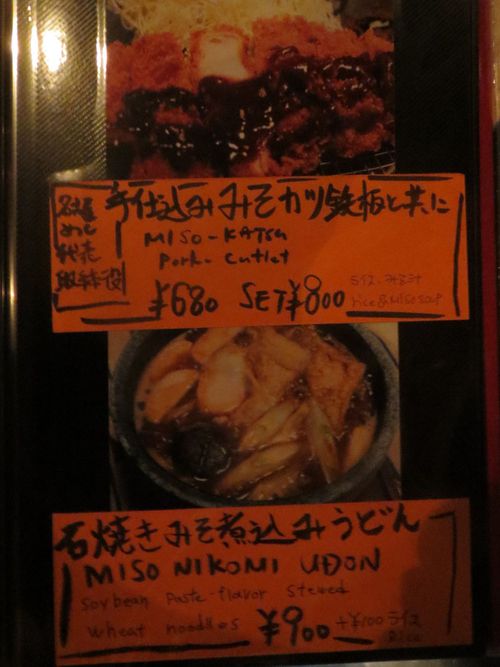 手仕込みみそカツ鉄板と共に
名古屋
めし
代表
取締役
MISO-KATSU
Pork-Cutlet
¥680 SET¥800
ライス、みそ汁
rice & MISO soup
石焼きみそ煮込みうどん
MISO NIKOMI UDON
Soybean paste-flavor stewed
wheat noodles ¥900 +¥100 ライス
Rice